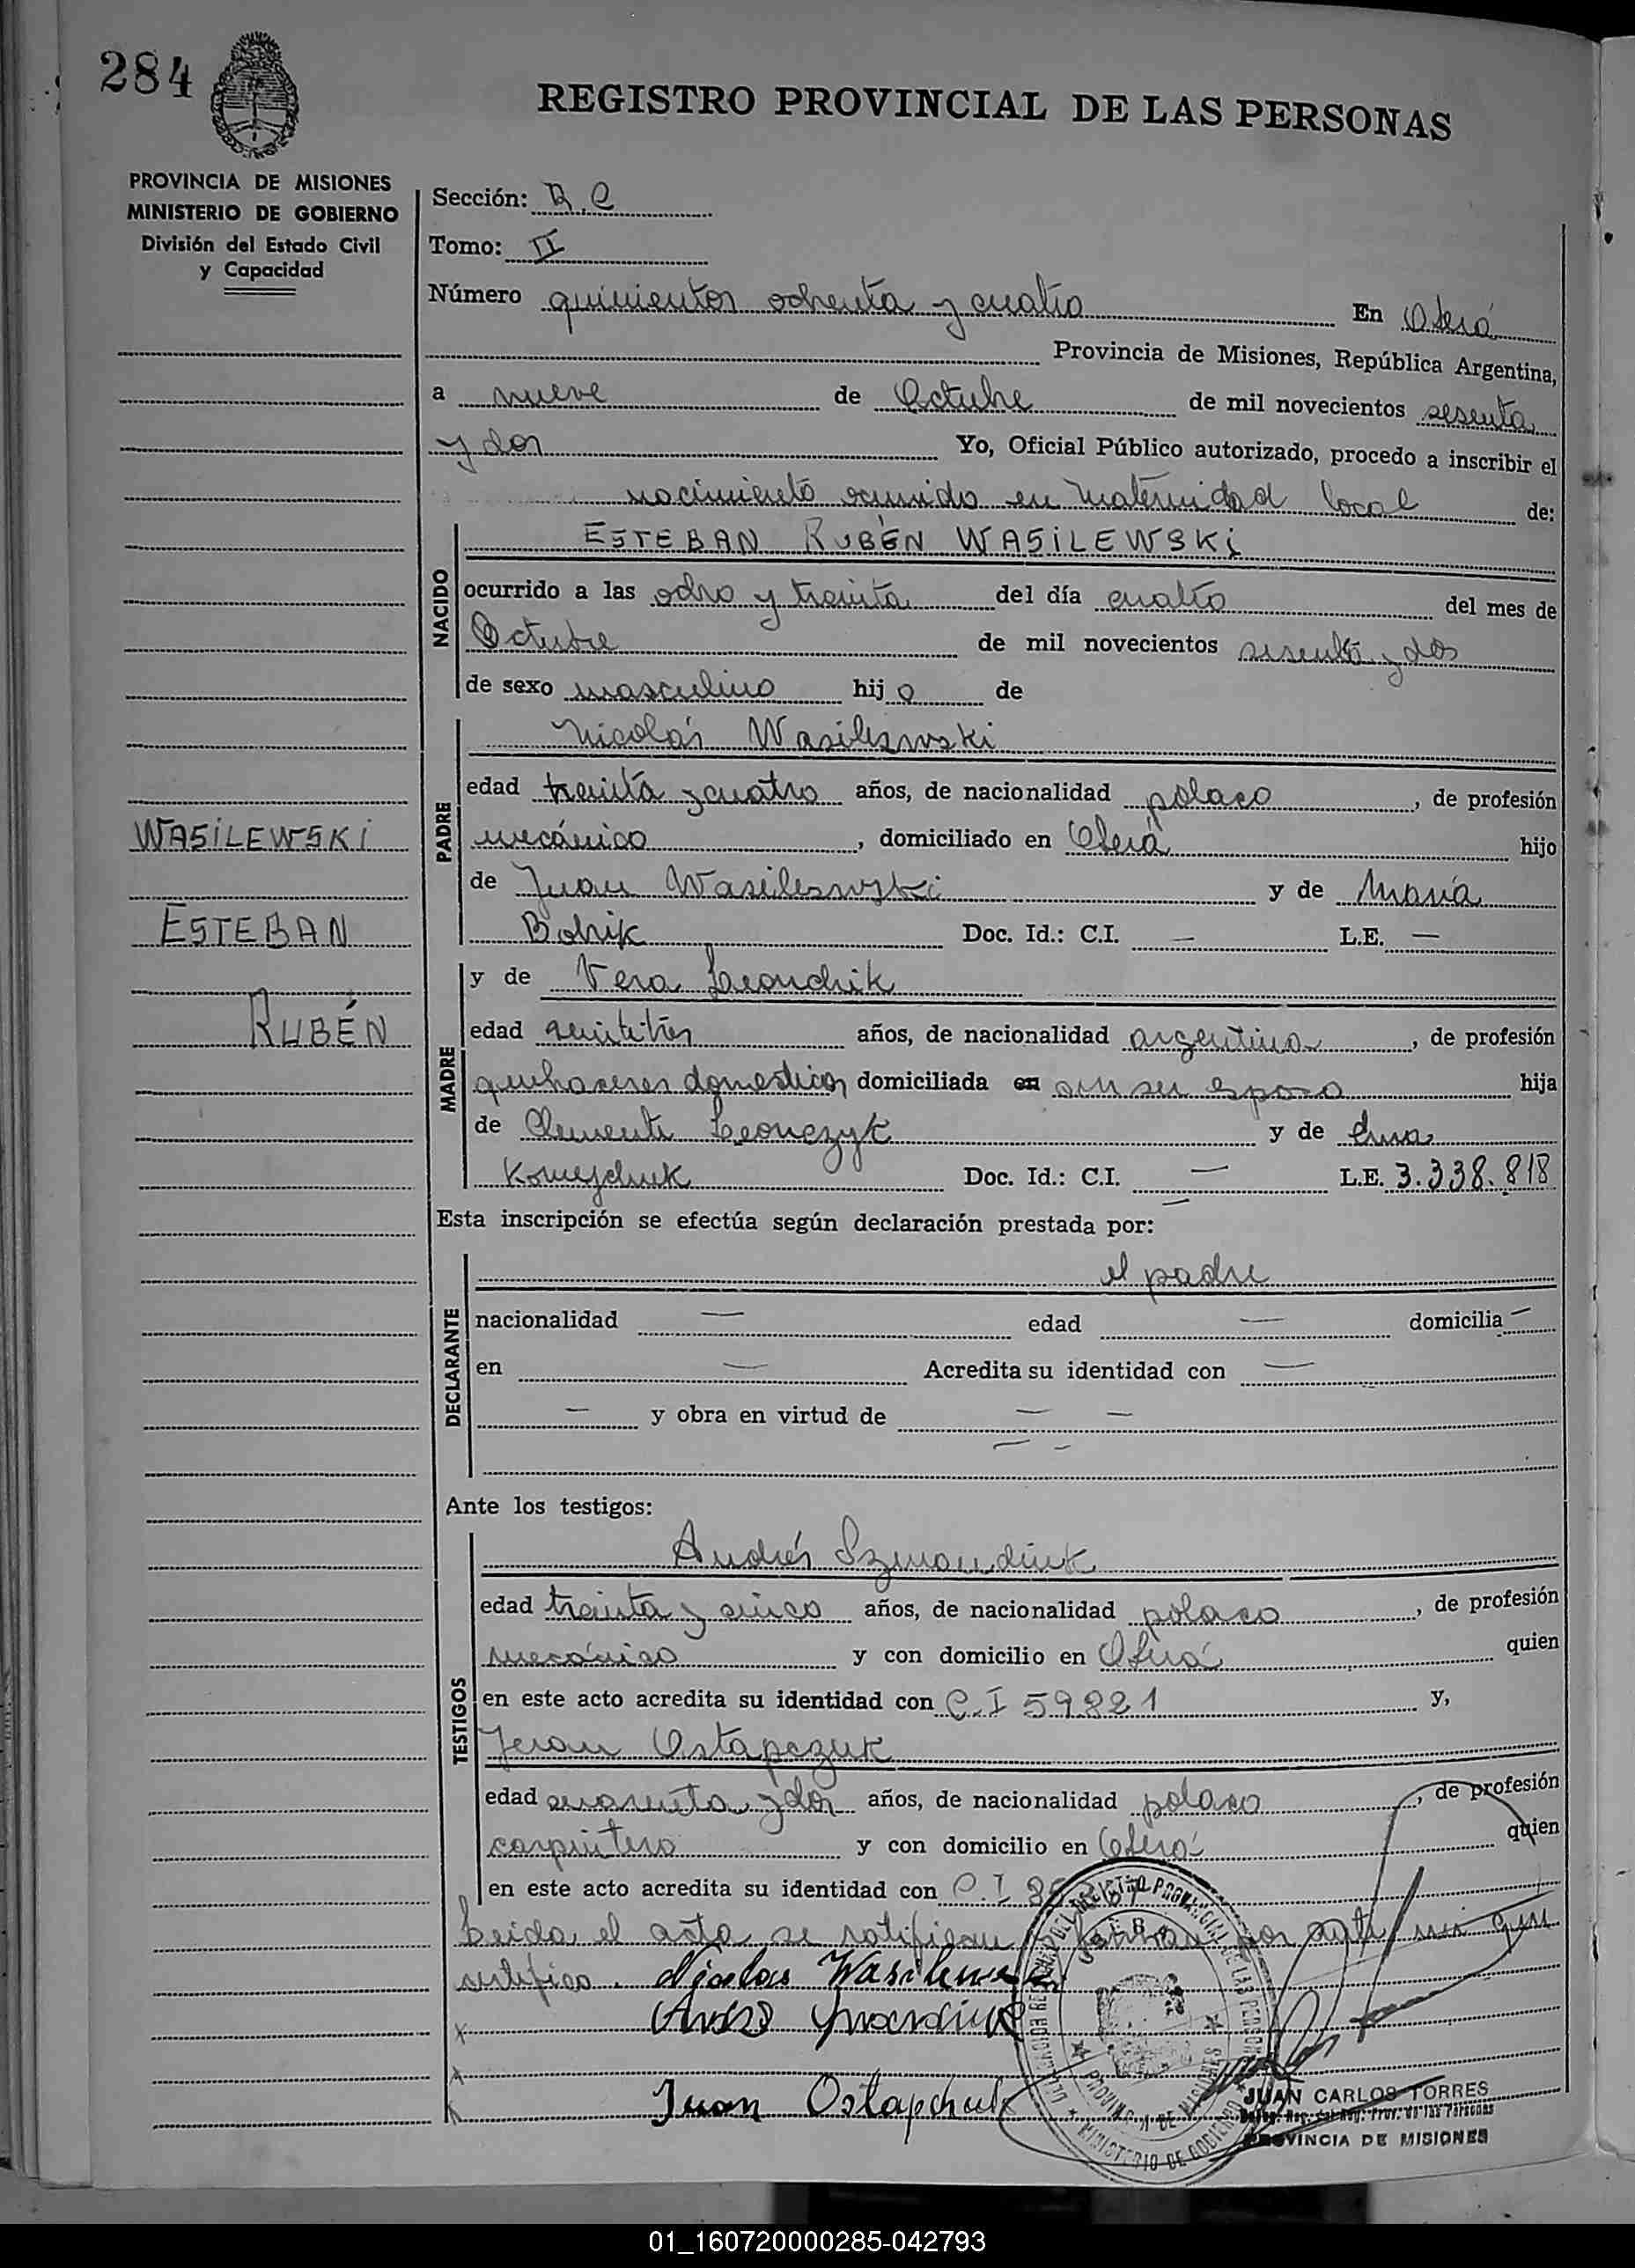 284
REGISTRO PROVINCIAL DE LAS PERSONAS
PROVINCIA DE MISIONES
MINISTERIO DE GOBIERNO
División del Estado Civil
y Capacidad
Sección:
Tomo: II
Número quinientos ochenta y cuatro En Oberá
Provincia de Misiones, República Argentina,
a nueve de Octubre de mil novecientos sesenta
y dos Yo, Oficial Público autorizado, procedo a inscribir el
nacimiento ocurrido en maternidad local de:
NACIDO
ESTEBAN RUBÉN WASILEWSKI
ocurrido a las ocho y treinta del día cuatro del mes de
Octubre de mil novecientos sesenta y dos
de sexo masculino hijo de
PADRE
Nicolás Wasilewski
edad treinta y cuatro años, de nacionalidad polaco, de profesión
mecánico, domiciliado en Oberá hijo
de Juan Wasilewski y de María
Bobrik Doc. Id.: C.I. — L.E. —
WASILEWSKI
ESTEBAN
RUBÉN
MADRE
y de Vera Leonchik
edad veintitrés años, de nacionalidad argentina, de profesión
quehaceres domesticos domiciliada en con su esposo hija
de Clemente Leonczyk y de
Doc. Id.: C.I. — L.E. 3.338.818
Esta inscripción se efectúa según declaración prestada por:
DECLARANTE
el padre
nacionalidad — edad — domicilia —
en — Acredita su identidad con —
— y obra en virtud de — —
— —
Ante los testigos:
TESTIGOS
Andrés
edad treinta y cinco años, de nacionalidad polaco, de profesión
mecánico y con domicilio en Oberá quien
en este acto acredita su identidad con C.I 59821 y,
Juan Ostapczuk
edad cuarenta y dos años, de nacionalidad polaco, de profesión
carpintero y con domicilio en Oberá quien
en este acto acredita su identidad con C.I
Leida el acta se ratifican por ante mi que
certifico. Nicolas Wasilewski
Juan Ostapchuk
PROVINCIA DE MISIONES
MINISTERIO DE GOBIERNO
JUAN CARLOS TORRES
PROVINCIA DE MISIONES
01_160720000285-042793